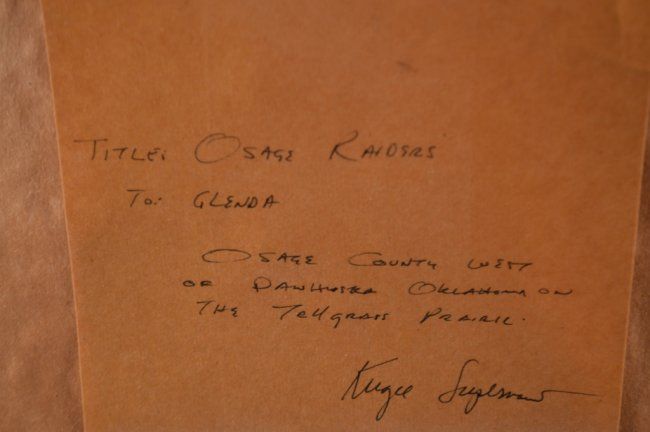 TITLE: OSAGE RAIDERS
TO: GLENDA
OSAGE COUNTY WEST
OF PAWHUSKA OKLAHOMA ON
THE TALLGRASS PRAIRIE.